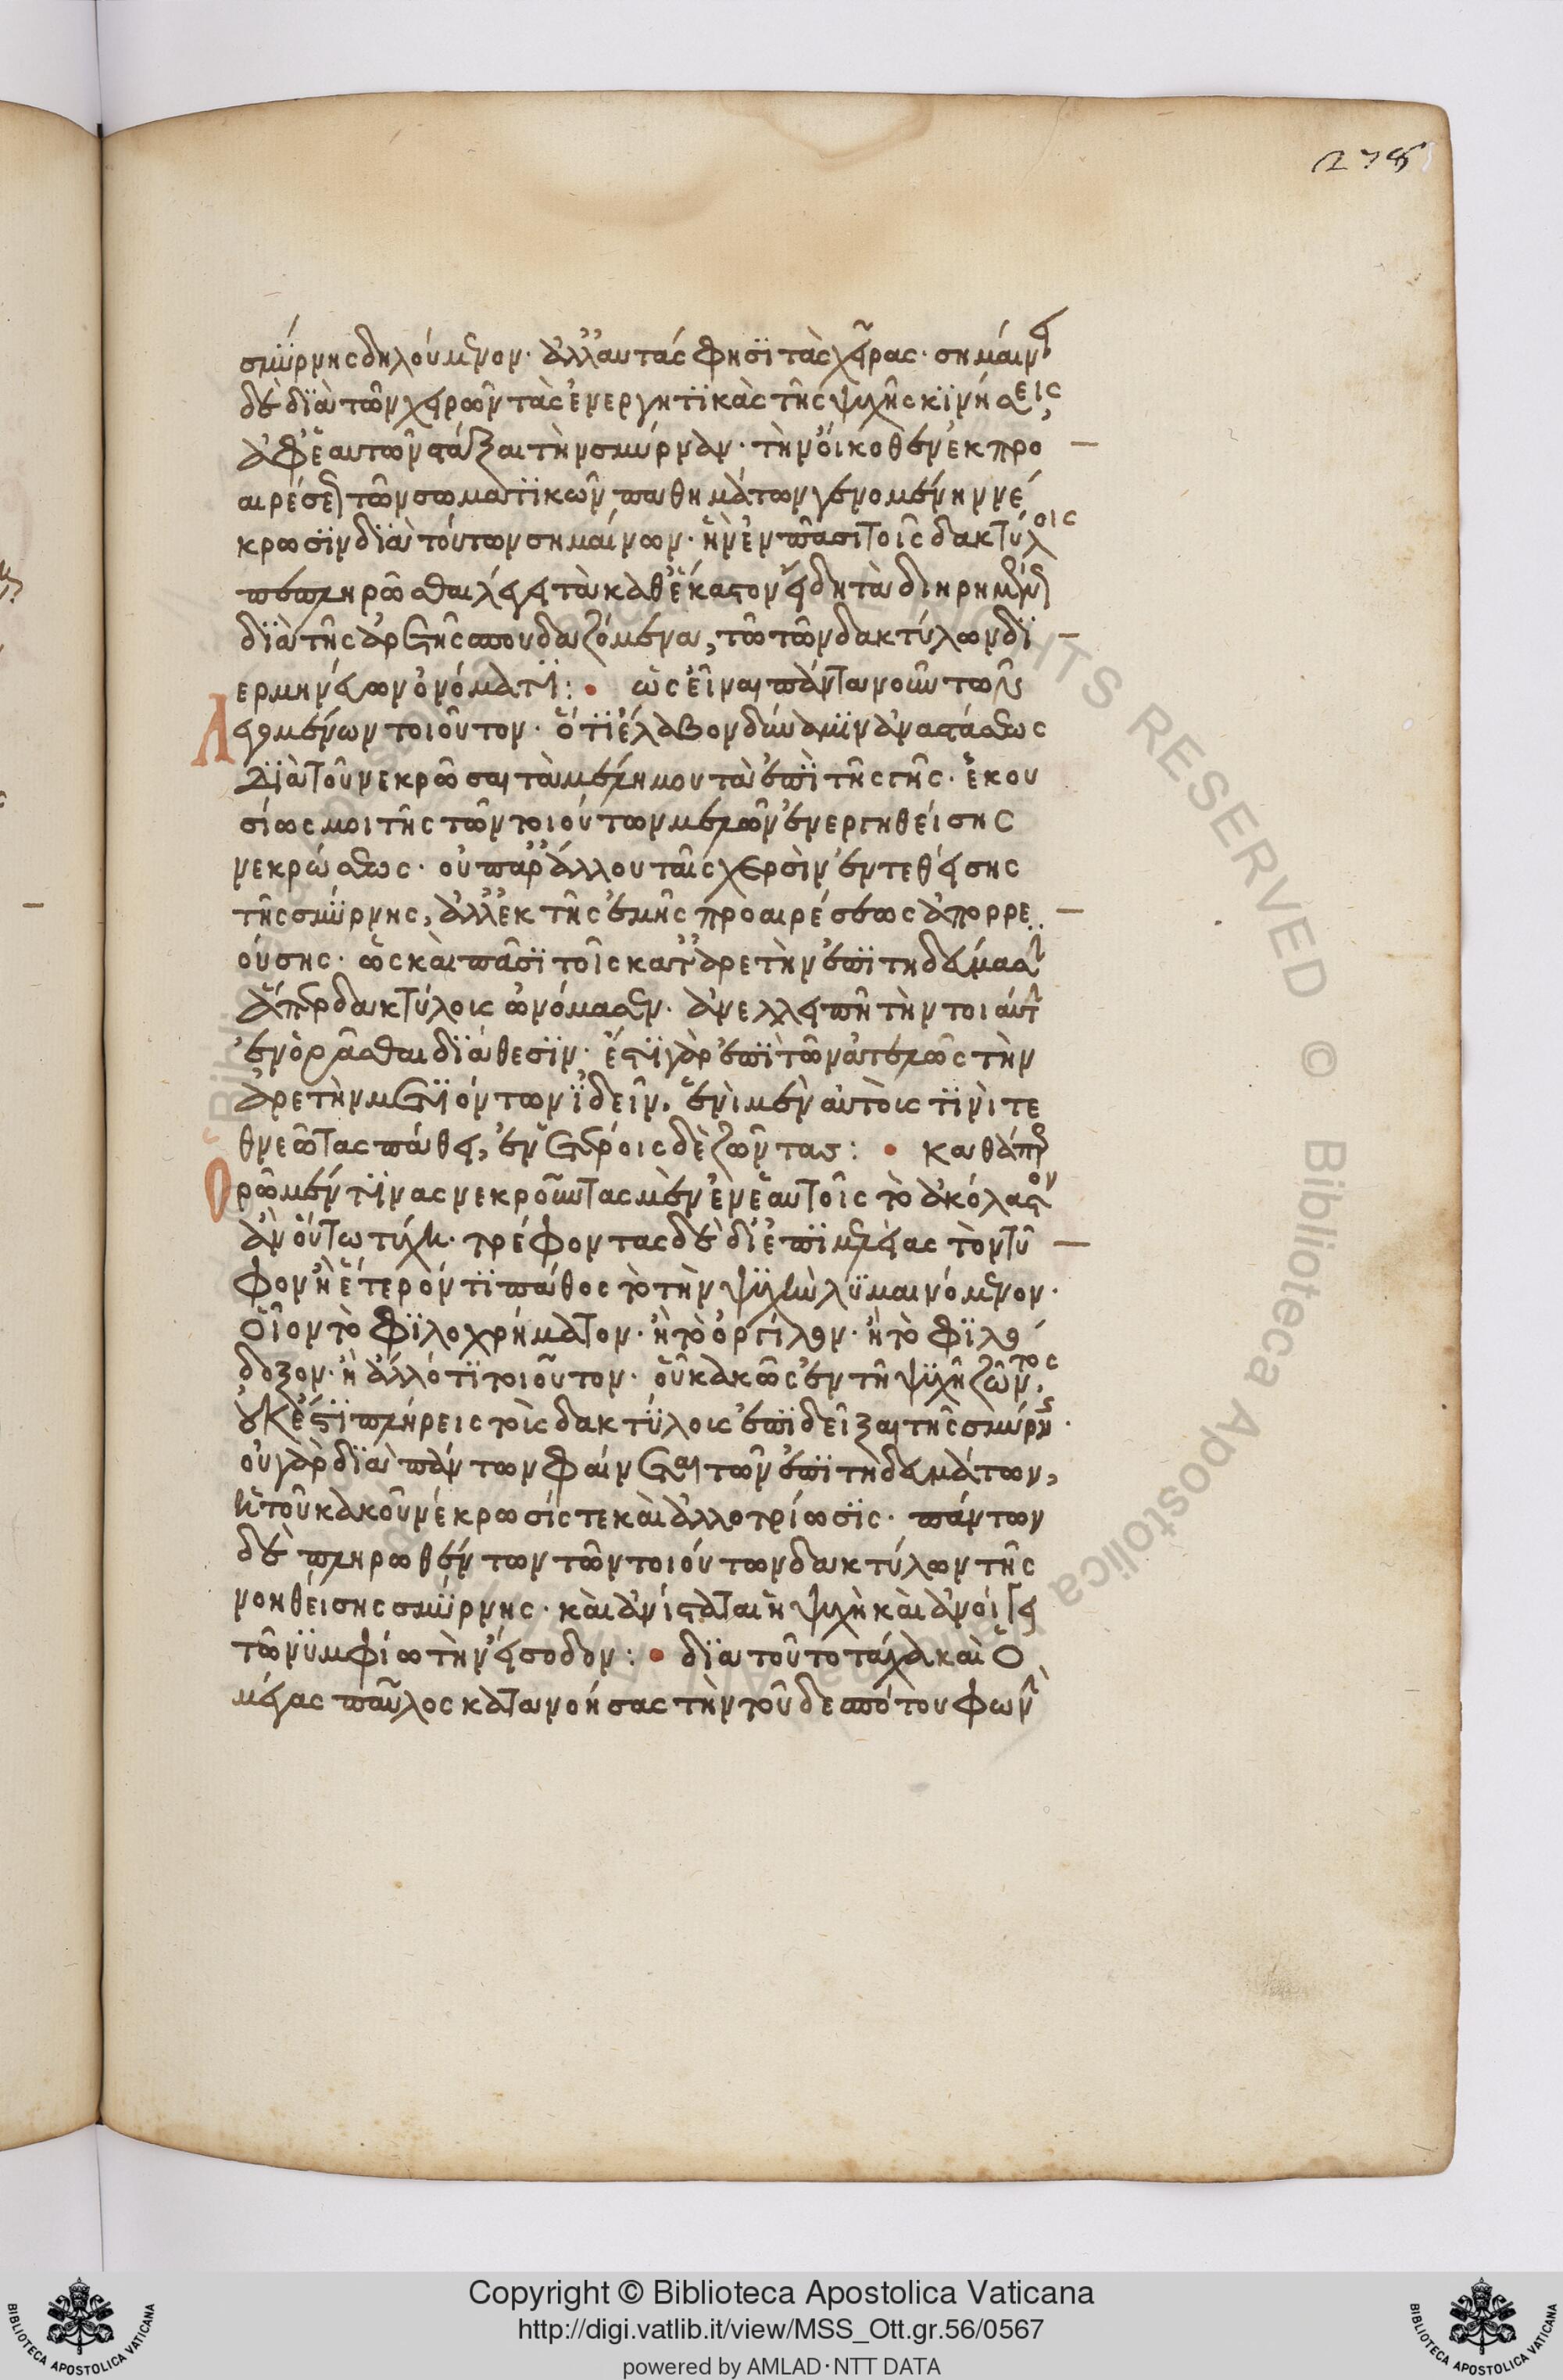 275
σμύρνης δηλούμενον· ἀλλ' αυτάς φησϊ τὰς χεῖρας· σημαίνει
δὲ δϊὰ τῶν χειρῶν τὰς ἐνεργητϊκὰς τῆς ψυχῆς κϊνήσεις
ἀφ' ἑαυτῶν στάξαι τὴν σμύρναν· τὴν οἴκοθεν ἐκ προ
αιρέσεως τῶν σωματϊκῶν παθημάτων γενομένην νέ
κρωσϊν δϊὰ τούτων σημαίνων· ἣν ἐν πᾶσι τοῖς δακτύλοις
πεπληρῶσθαι λέγει τὰ καθέκαστον εἴδη τὰ διηρημένως
δϊὰ τῆς ἀρετῆς σπουδαζόμενα, τῶ τῶν δακτύλων δϊ
ερμηνεύων ὀνόματϊ: ὡς εἶναι πάντα νοῦν τῶν
λεγομένων τοιοῦτον· ὅτϊ ἔλαβον δύναμϊν ἀναστάσεως
Δϊὰ τοῦ νεκρῶσαι τὰ μέλη μου τὰ ἐπϊ τῆς γῆς· ἑκου
σίως μοι τῆς τῶν τοιούτων μελῶν ἐνεργηθείσης
νεκρώσεως· οὐ παρ' ἄλλου ταῖς χερσὶν ἐντεθείσης
τῆς σμύρνης, ἀλλ' ἐκ τῆς ἐμῆς προαιρέσεως ἀπορρε
ούσης· ὡς καὶ πᾶσϊ τοῖς κατ' ἀρετὴν ἐπϊτηδεύμασιν
ἅπερ δακτύλοις ὠνόμασεν· ἀνελλειπῆ τὴν τοιαύτην
ἐνορᾶσθαι δϊάθεσϊν· ἔστϊ γὰρ ἐπϊ τῶν ἀτελῶς τὴν
ἀρετὴν μετϊόντων ϊδεῖν, ἑνὶ μὲν αὐτοὺς τϊνὶ τε
θνεῶτας πάθει, ἐν ἑτέροις δὲ ζῶντας: καθάπερ
Ὁρῶμέν τϊνας νεκροῦντας μὲν ἐν ἑαυτοῖς τὸ ἀκόλαστον
ἂν οὕτω τύχη· τρέφοντας δὲ δϊ' ἐπϊμελείας τὸν τῦ
φον ἢ ἕτερόν τϊ πάθος τὸ τὴν ψυχὴν λϋμαινόμενον·
Οἷον τὸ φϊλοχρήματον· ἢ τὸ ὀργίλον· ἢ τὸ φϊλό
δοξον· ἢ ἄλλό τϊ τοιοῦτον· οὗ κακῶς ἐν τῆ ψυχῆ ζῶντος,
οὐκ ἔστϊ πλήρεις τοὺς δακτύλους ἐπϊδεῖξαι τῆς σμύρνης·
οὐ γὰρ δϊὰ πάντων φαίνεται τῶν ἐπϊτηδευμάτων,
ἡ τοῦ κακοῦ νέκρωσίς τε καὶ ἀλλοτρίωσϊς· πάντων
δὲ πληρωθέντων τῶν τοιούτων δακτύλων τῆς
νοηθείσης σμύρνης· καὶ ἀνίσταται ἡ ψυχὴ καὶ ἀνοίγει
τῶ νϋμφίω τὴν εἴσοδον: δϊα τοῦτο τάχα καὶ ὁ
μέγας παῦλος κατανοήσας τὴν τοῦ δεσπότου φωνὴν
Copyright © Biblioteca Apostolica Vaticana
http://digi.vatlib.it/view/MSS_Ott.gr.56/0567
powered by AMLAD·NTT DATA